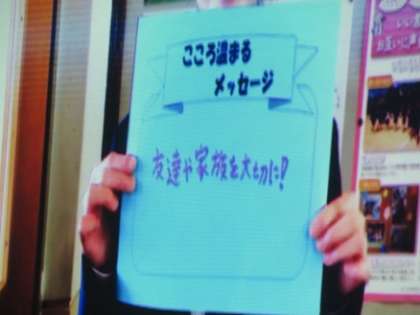 こころ温まる
メッセージ
友達や家族を大切に!